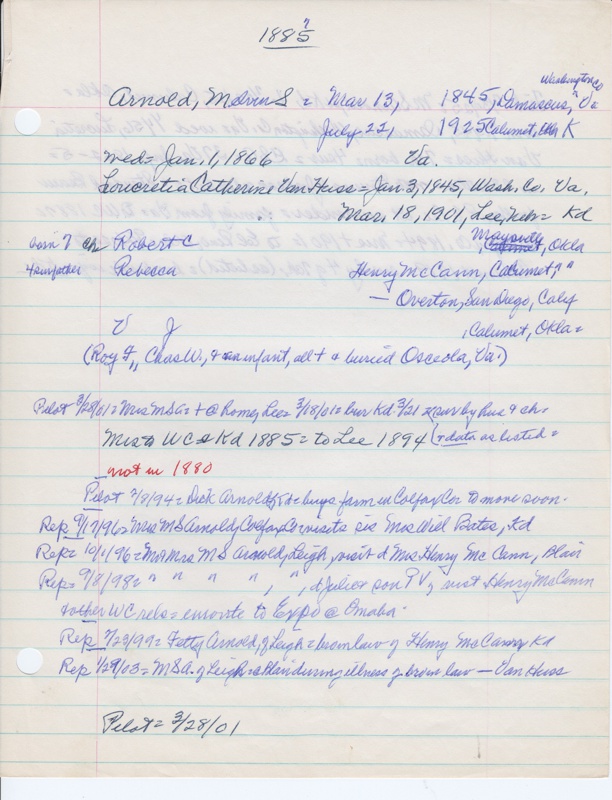 1885 7
Washington Co
Arnold, Melvin S = Mar 13, 1845, Damascus, Va
July 22, 1925 Calumet, Okla K
wed = Jan, 1, 1866 Va.
Loucretia Catherine Van Huss = Jan 3, 1845, Wash. Co. Va.
Mar, 18, 1901, Lee, Neb = Kd
born 7 ch Robert C Maysville, Okla
4 sur father Rebecca Henry McCann, Calumet, " "
— Overton, San Diego, Calif
V J , Calumet, Okla =
(Roy F,, Chas W., + an infant, all + & buried Osceola, Va.)
Pilot 3/28/01 = Mrs MSA = + @ home, Lee = 3/18/01 = bur Kd. 3/21 sur by hus & ch =
Mrs to WC & Kd 1885 = to Lee 1894 (+ data as listed =
not in 1880
Pilot 2/8/94 = Dick Arnold buys farm in Colfax Co to move soon.
Rep 9/17/96 = Mrs MS Arnold, Colfax Co visits sis Mrs Will Bates, Kd
Rep = 10/1/96 = Mr Mrs MS Arnold, Leigh, visit d Mrs Henry Mc Cann, Blair
Rep = 9/8/98 = " " " " , " , d Julia & son RV visit Henry McCann
& other WC rels = enroute to Expo @ Omaha.
Rep 7/29/99 = Fetty Arnold, of Leigh = bro in law of Henry McCann, Kd
Rep 1/29/03 = M.S.A. of Leigh = @ Blair during illness of bro in law — Van Huss
Pilot = 3/28/01